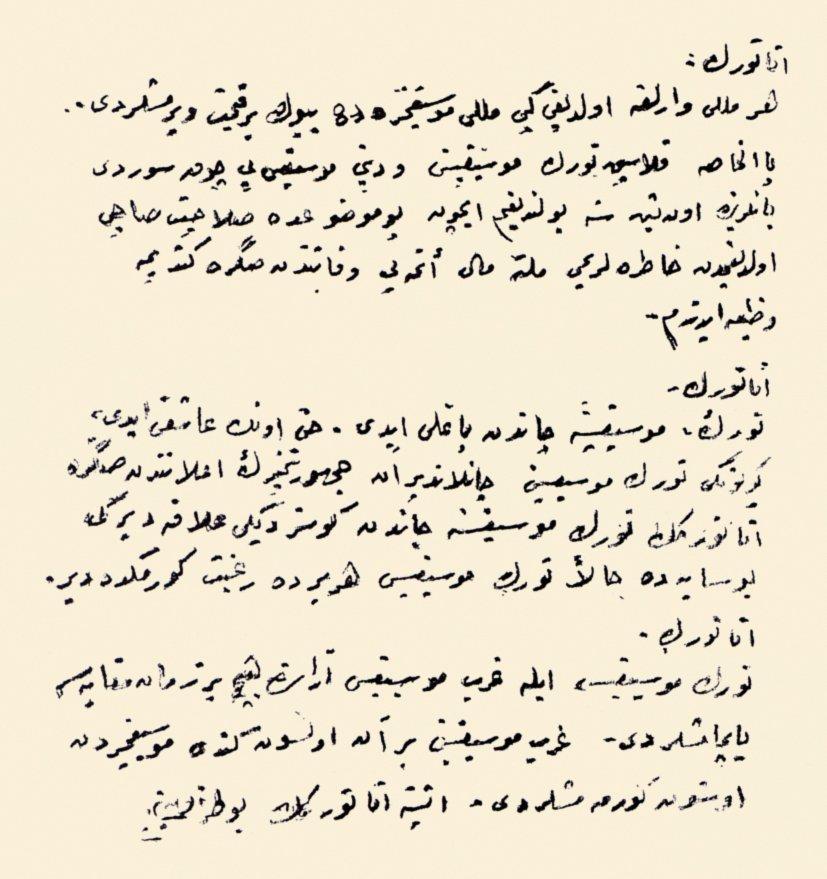 اتاتورك:
هر ملى وارلغه اولديغى كبى ملى موسيقيمزه ده بيوك بر قيمت ويرمشلردى.
باالخاصه قلاسيق تورك موسيقيسنى و دينى موسيقى يى چوق سوردى
يانلرنده اون سنه بولنديغم ايچون بو موضوعده صلاحيت صاحبى
اولديغمدن خاطره لريمى ملته مال أتمه يى وفاتندن صكره كنديمه
وظيفه ايدندم.
أتاتورك.
تورك موسيقيسنه جاندن باغلى ايدى. حتى اونك عاشقى ايدى
بوكونكى تورك موسيقيسنى جانلانديران جمهوريتمزك اعلانندن صكره
اتاتورك تورك موسيقيسنه جاندن كوسترديكى علاقه ديركه
بو سايه ده حالأ تورك موسيقيسى هر يرده رغبت كورمكده دير.
اتاتورك.
تورك موسيقيسى ايله غرب موسيقيسى آراسنده هيچ بر زمان مقايسه
ياپمامشلردى. غرب موسيقيسنى بر آن اولسون كندى موسيقيمزدن
اوستون كورمه مشلردى. ايشته اتاتورك بو